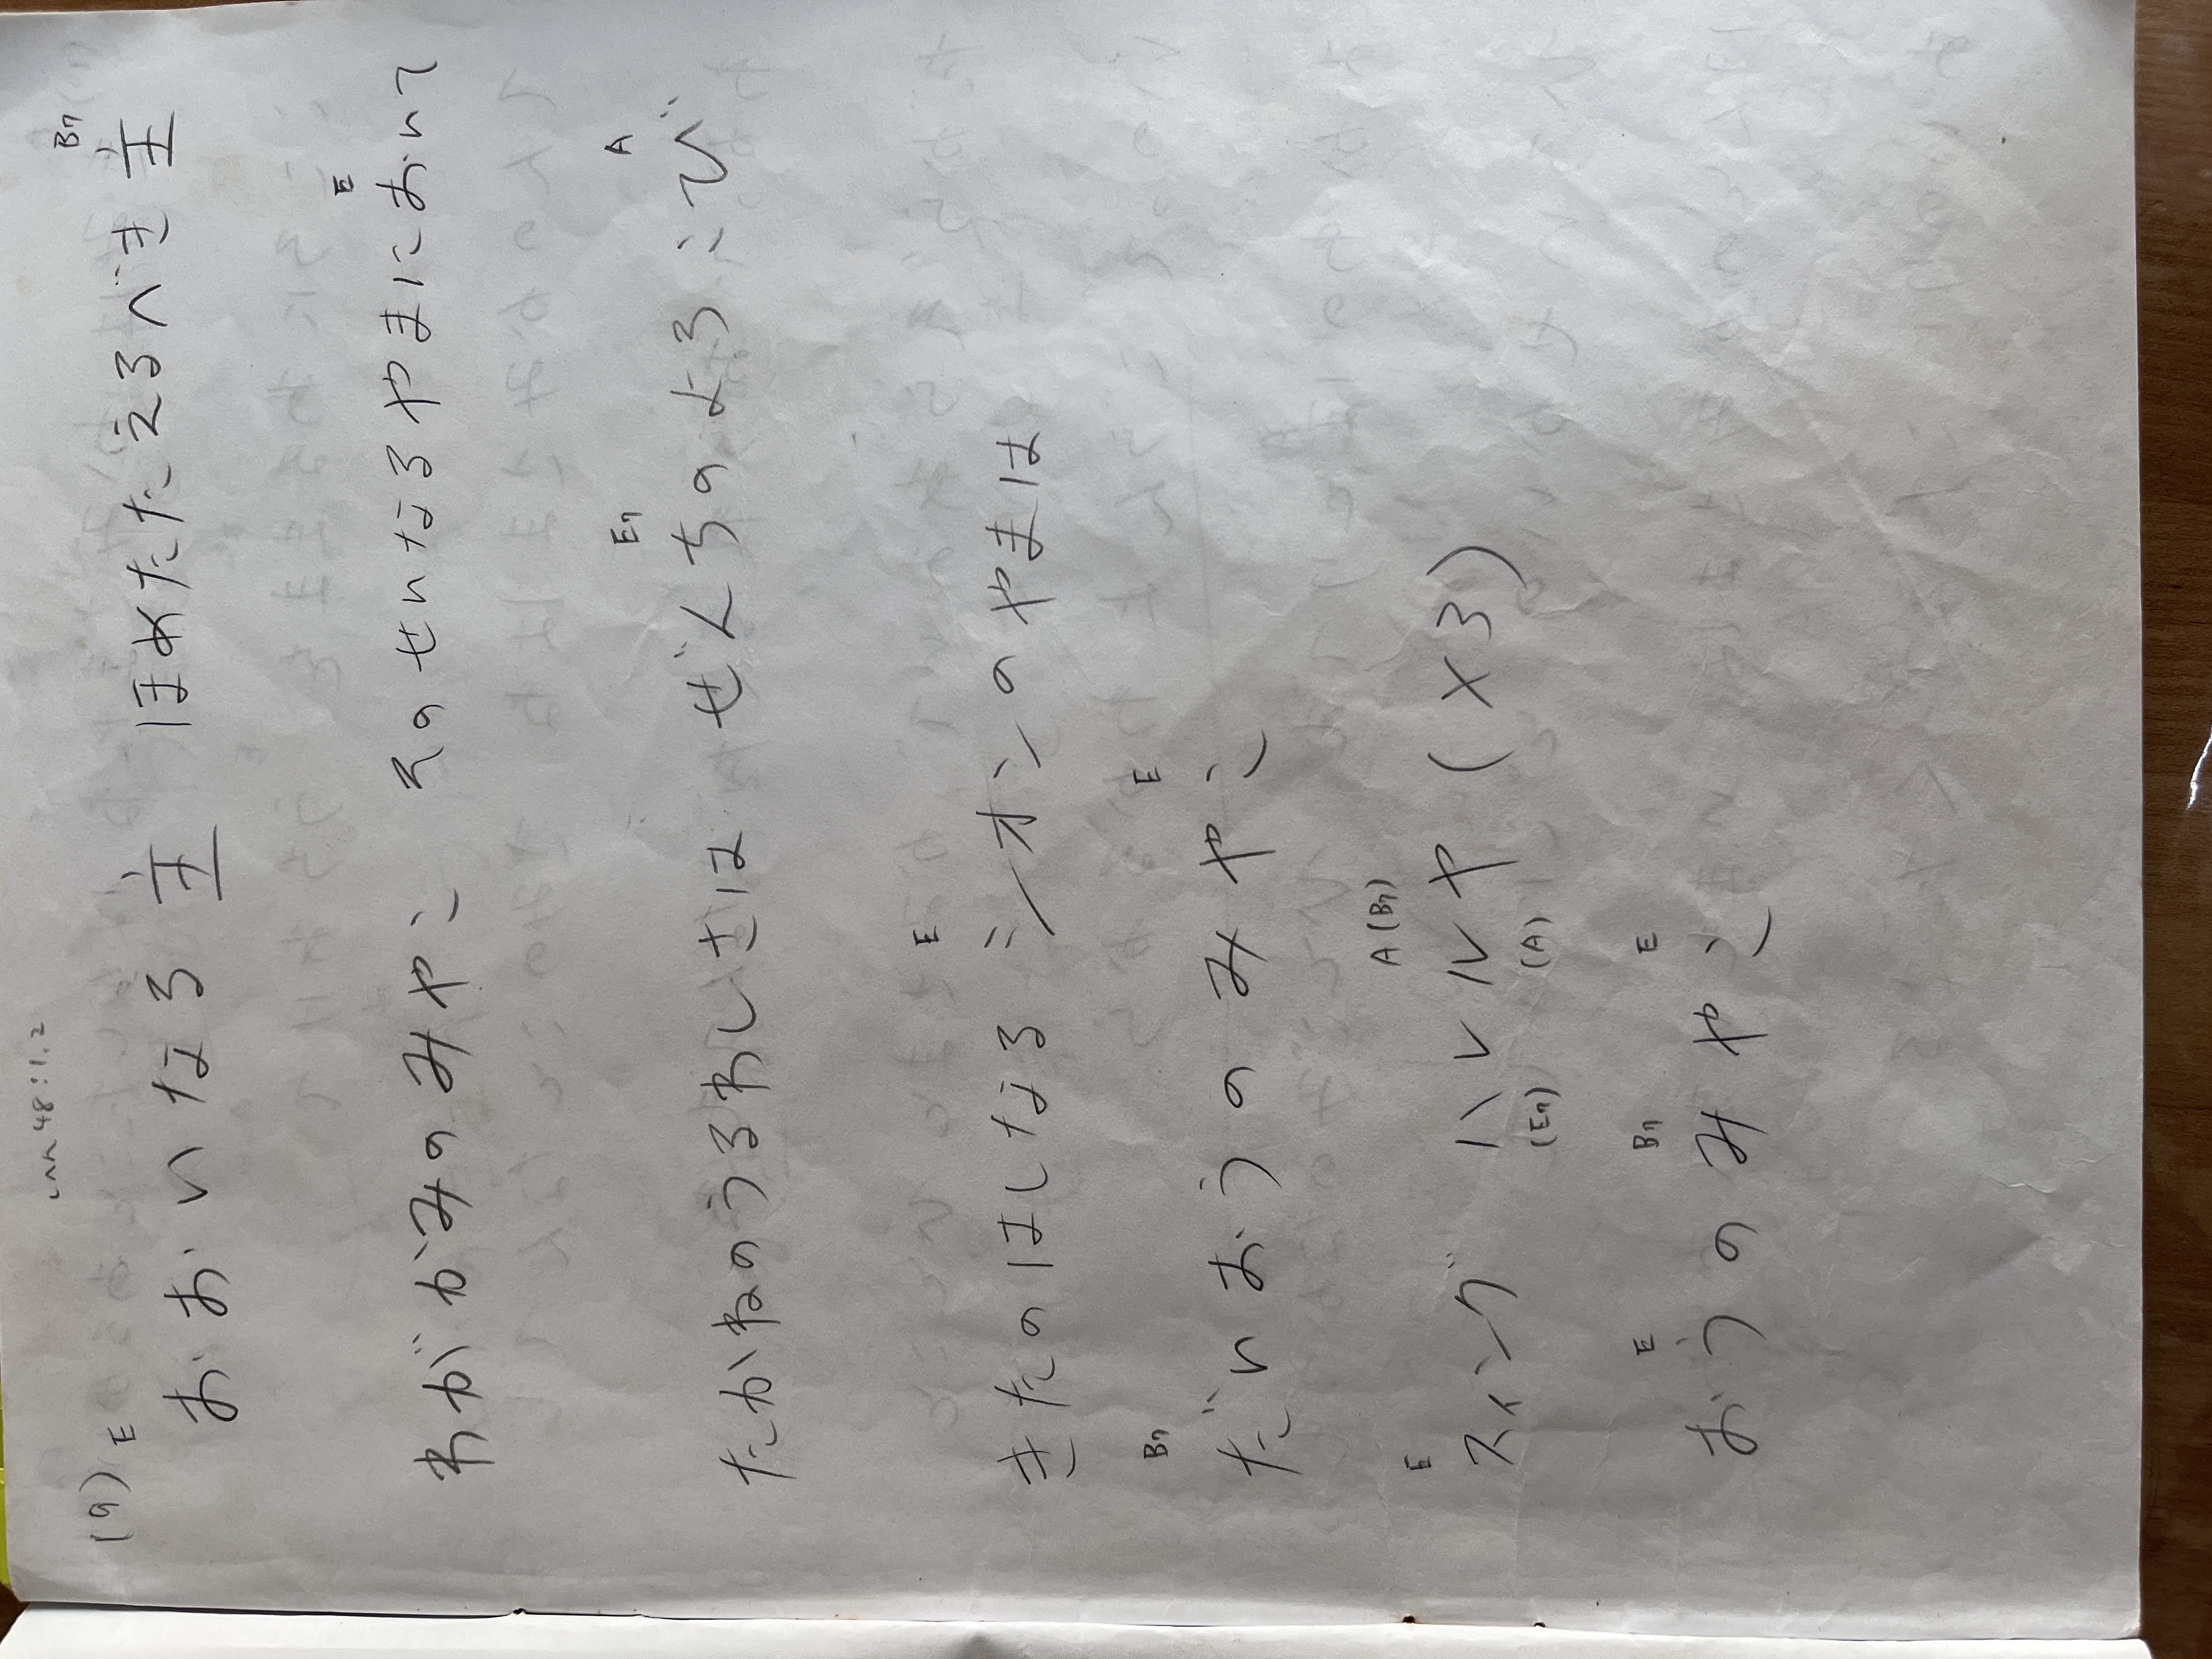 (9)
48:1.2
E B7
おおいなる主 ほめたたえるべき主
E
わがかみのみやこ そのせいなるやまにおいて
E7 A
たかねのうるわしさは ぜんちのよろこび
E
きたのはしなる シオンのやまは
B7 E
だいおうのみやこ
E A(B7)
スィング ハレルヤ (×3)
(E7) (A)
E B7 E
おうのみやこ